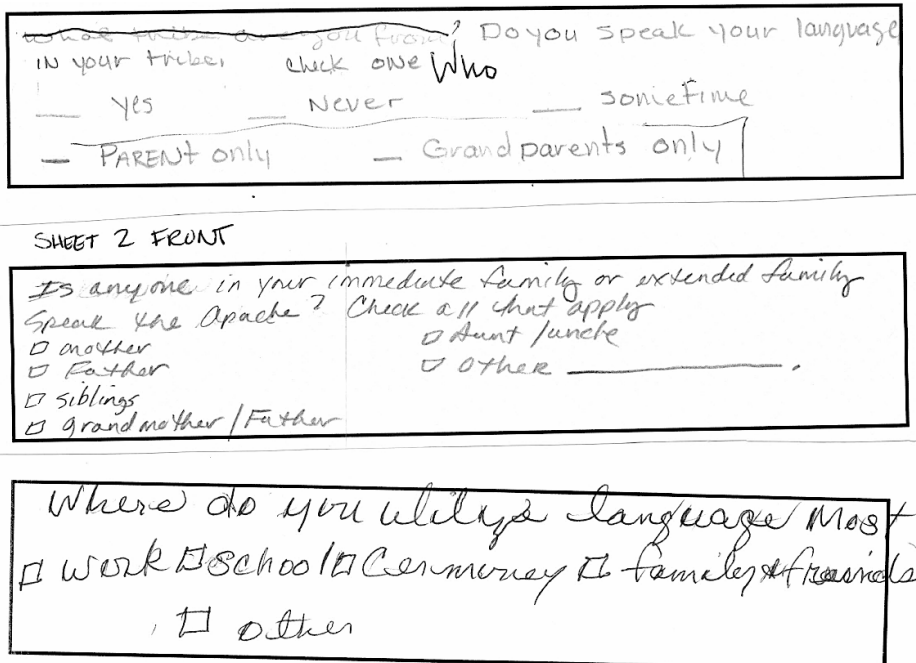 what tribe are you from? Do you speak your language
IN your tribe, check one Who
__ yes __ Never __ sometime
__ PARENT only __ Grandparents only
SHEET 2 FRONT
Is anyone in your immediate family or extended family
Speak the Apache? Check all that apply
□ mother □ Aunt/uncle
□ Father □ Other __________.
□ siblings
□ grandmother/Father
Where do you utilyze language Most
□ work □ school □ Cermoney □ family & friends
□ other